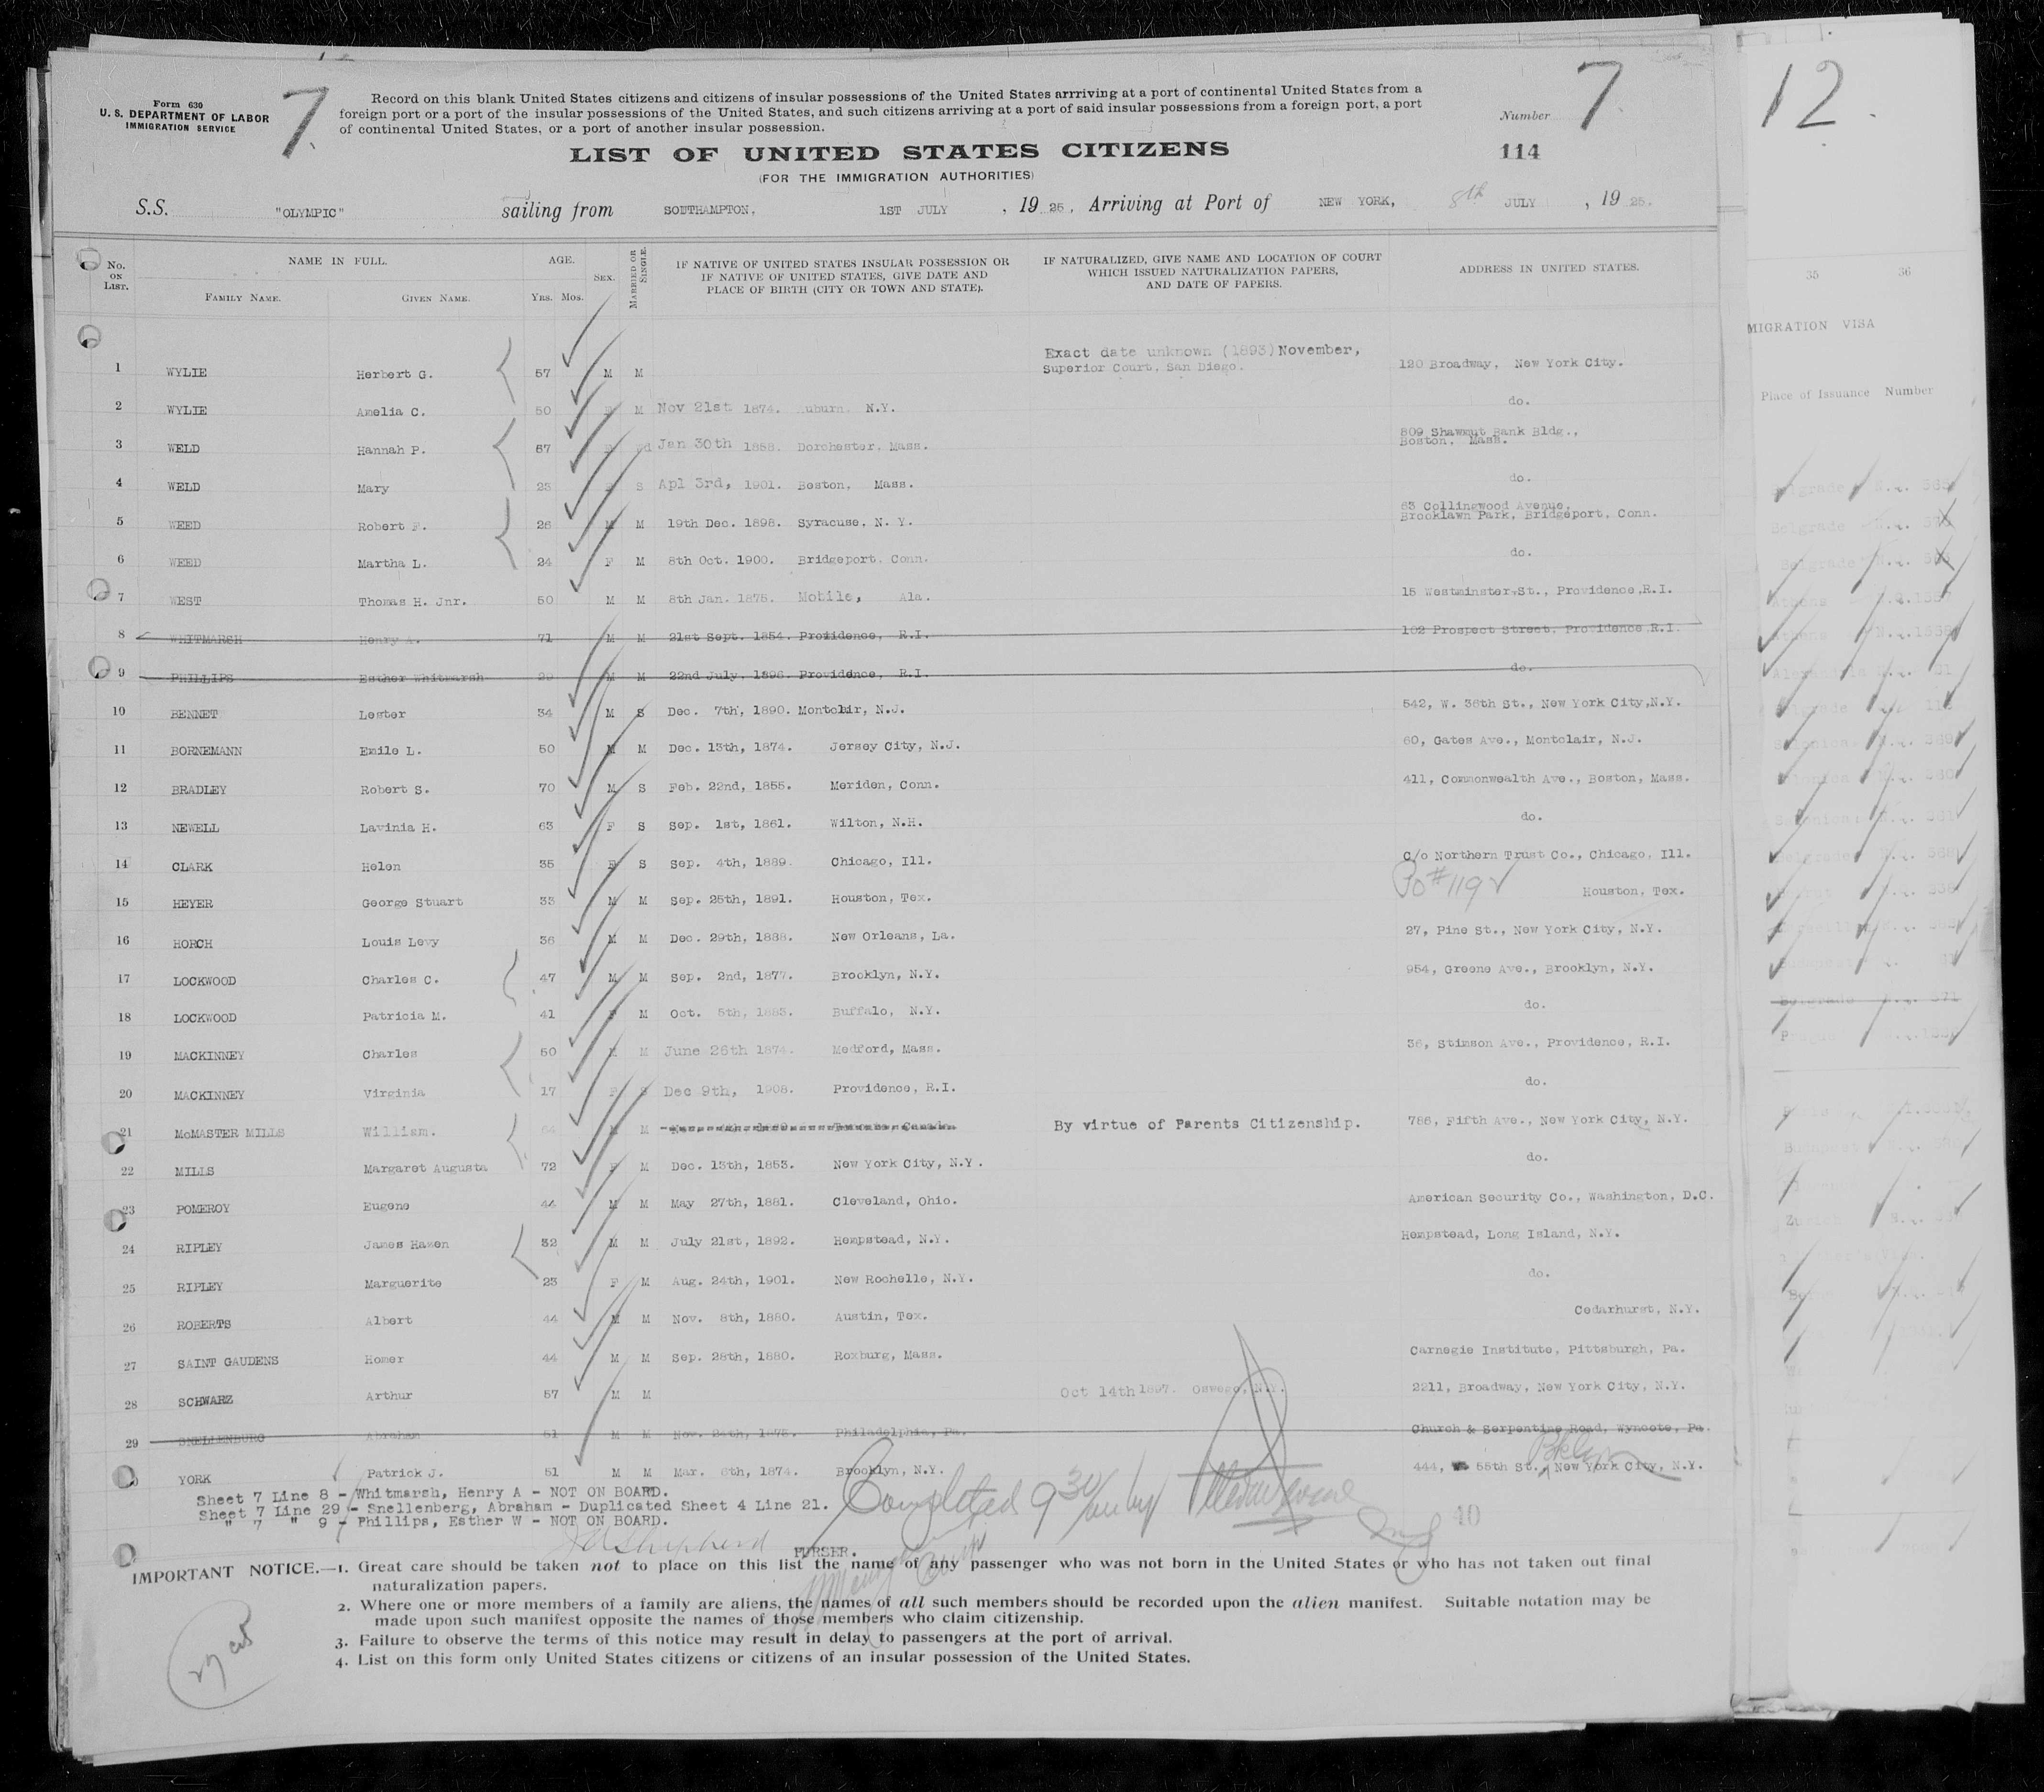 Form 630
U. S. DEPARTMENT OF LABOR
IMMIGRATION SERVICE
7
Record on this blank United States citizens and citizens of insular possessions of the United States arrriving at a port of continental United States from a
foreign port or a port of the insular possessions of the United States, and such citizens arriving at a port of said insular possessions from a foreign port, a port
of continental United States, or a port of another insular possession.
Number 7
12.
LIST OF UNITED STATES CITIZENS
(FOR THE IMMIGRATION AUTHORITIES)
114
S.S. "OLYMPIC" sailing from SOUTHAMPTON, 1ST JULY , 19 25, Arriving at Port of NEW YORK, 8th JULY , 19 25.
No. on List. NAME IN FULL. FAMILY NAME. GIVEN NAME. AGE. Yrs. Mos. SEX. MARRIED OR SINGLE. IF NATIVE OF UNITED STATES INSULAR POSSESSION OR IF NATIVE OF UNITED STATES, GIVE DATE AND PLACE OF BIRTH (CITY OR TOWN AND STATE). IF NATURALIZED, GIVE NAME AND LOCATION OF COURT WHICH ISSUED NATURALIZATION PAPERS, AND DATE OF PAPERS. ADDRESS IN UNITED STATES.
35 36
MIGRATION VISA
Place of Issuance Number
1 WYLIE Herbert G. 57 M M Exact date unknown (1893) November, Superior Court, San Diego. 120 Broadway, New York City.
2 WYLIE Amelia C. 50 F M Nov 21st 1874. Auburn N.Y. do.
3 WELD Hannah P. 67 F Wd Jan 30th 1858. Dorchester, Mass. 809 Shawmut Bank Bldg., Boston. Mass.
4 WELD Mary 23 F S Apl 3rd, 1901. Boston, Mass. do.
5 WEED Robert F. 26 M M 19th Dec. 1898. Syracuse, N. Y. 63 Collingwood Avenue, Brooklawn Park, Bridgeport, Conn.
6 WEED Martha L. 24 F M 8th Oct. 1900. Bridgeport, Conn. do.
7 WEST Thomas H. Jnr. 50 M M 8th Jan. 1875. Mobile, Ala. 15 Westminster St., Providence,R.I.
8 WHITMARSH Henry A. 71 M M 21st Sept. 1854. Providence, R.I. 102 Prospect Street, Providence R.I.
9 PHILLIPS Esther Whitmarsh 29 M M 22nd July, 1896. Providence, R.I. do.
10 BENNET Lester 34 M S Dec. 7th, 1890. Montclair, N.J. 542, W. 36th St., New York City,N.Y.
11 BORNEMANN Emile L. 50 M M Dec. 13th, 1874. Jersey City, N.J. 60, Gates Ave., Montclair, N.J.
12 BRADLEY Robert S. 70 M S Feb. 22nd, 1855. Meriden, Conn. 411, Commonwealth Ave., Boston, Mass.
13 NEWELL Lavinia H. 63 F S Sep. 1st, 1861. Wilton, N.H. do.
14 CLARK Helen 35 F S Sep. 4th, 1889. Chicago, Ill. c/o Northern Trust Co., Chicago, Ill.
15 HEYER George Stuart 33 M M Sep. 25th, 1891. Houston, Tex. PO # 1192 Houston, Tex.
16 HORCH Louis Levy 36 M M Dec. 29th, 1888. New Orleans, La. 27, Pine St., New York City, N.Y.
17 LOCKWOOD Charles C. 47 M M Sep. 2nd, 1877. Brooklyn, N.Y. 954, Greene Ave., Brooklyn, N.Y.
18 LOCKWOOD Patricia M. 41 F M Oct. 5th, 1883. Buffalo, N.Y. do.
19 MACKINNEY Charles 50 M M June 26th 1874. Medford, Mass. 36, Stimson Ave., Providence, R.I.
20 MACKINNEY Virginia 17 F S Dec 9th, 1908. Providence, R.I. do.
21 McMASTER MILLS William. 64 M M By virtue of Parents Citizenship. 786, Fifth Ave., New York City, N.Y.
22 MILLS Margaret Augusta 72 F M Dec. 13th, 1853. New York City, N.Y. do.
23 POMEROY Eugene 44 M M May 27th, 1881. Cleveland, Ohio. American Security Co., Washington, D.C.
24 RIPLEY James Hazen 32 M M July 21st, 1892. Hempstead, N.Y. Hempstead, Long Island, N.Y.
25 RIPLEY Marguerite 23 F M Aug. 24th, 1901. New Rochelle, N.Y. do.
26 ROBERTS Albert 44 M M Nov. 8th, 1880. Austin, Tex. Cedarhurst, N.Y.
27 SAINT GAUDENS Homer 44 M M Sep. 28th, 1880. Roxburg, Mass. Carnegie Institute, Pittsburgh, Pa.
28 SCHWARZ Arthur 57 M M Oct 14th 1897. Oswego, N.Y. 2211, Broadway, New York City, N.Y.
29 SNELLENBURG Abraham 51 M M Nov. 24th, 1873. Philadelphia, Pa. Church & Serpentine Road, Wyncote, Pa.
YORK Patrick J. 51 M M Mar. 6th, 1874. Brooklyn, N.Y. 444, 55th St., Bklyn New York City, N.Y.
Sheet 7 Line 8 - Whitmarsh, Henry A - NOT ON BOARD.
Sheet 7 Line 29 - Snellenberg, Abraham - Duplicated Sheet 4 Line 21.
" 7 " 9 - Phillips, Esther W - NOT ON BOARD.
Completed 9 30 am by
40
PURSER.
IMPORTANT NOTICE.—1. Great care should be taken not to place on this list the name of any passenger who was not born in the United States or who has not taken out final
naturalization papers.
2. Where one or more members of a family are aliens, the names of all such members should be recorded upon the alien manifest. Suitable notation may be
made upon such manifest opposite the names of those members who claim citizenship.
3. Failure to observe the terms of this notice may result in delay to passengers at the port of arrival.
4. List on this form only United States citizens or citizens of an insular possession of the United States.